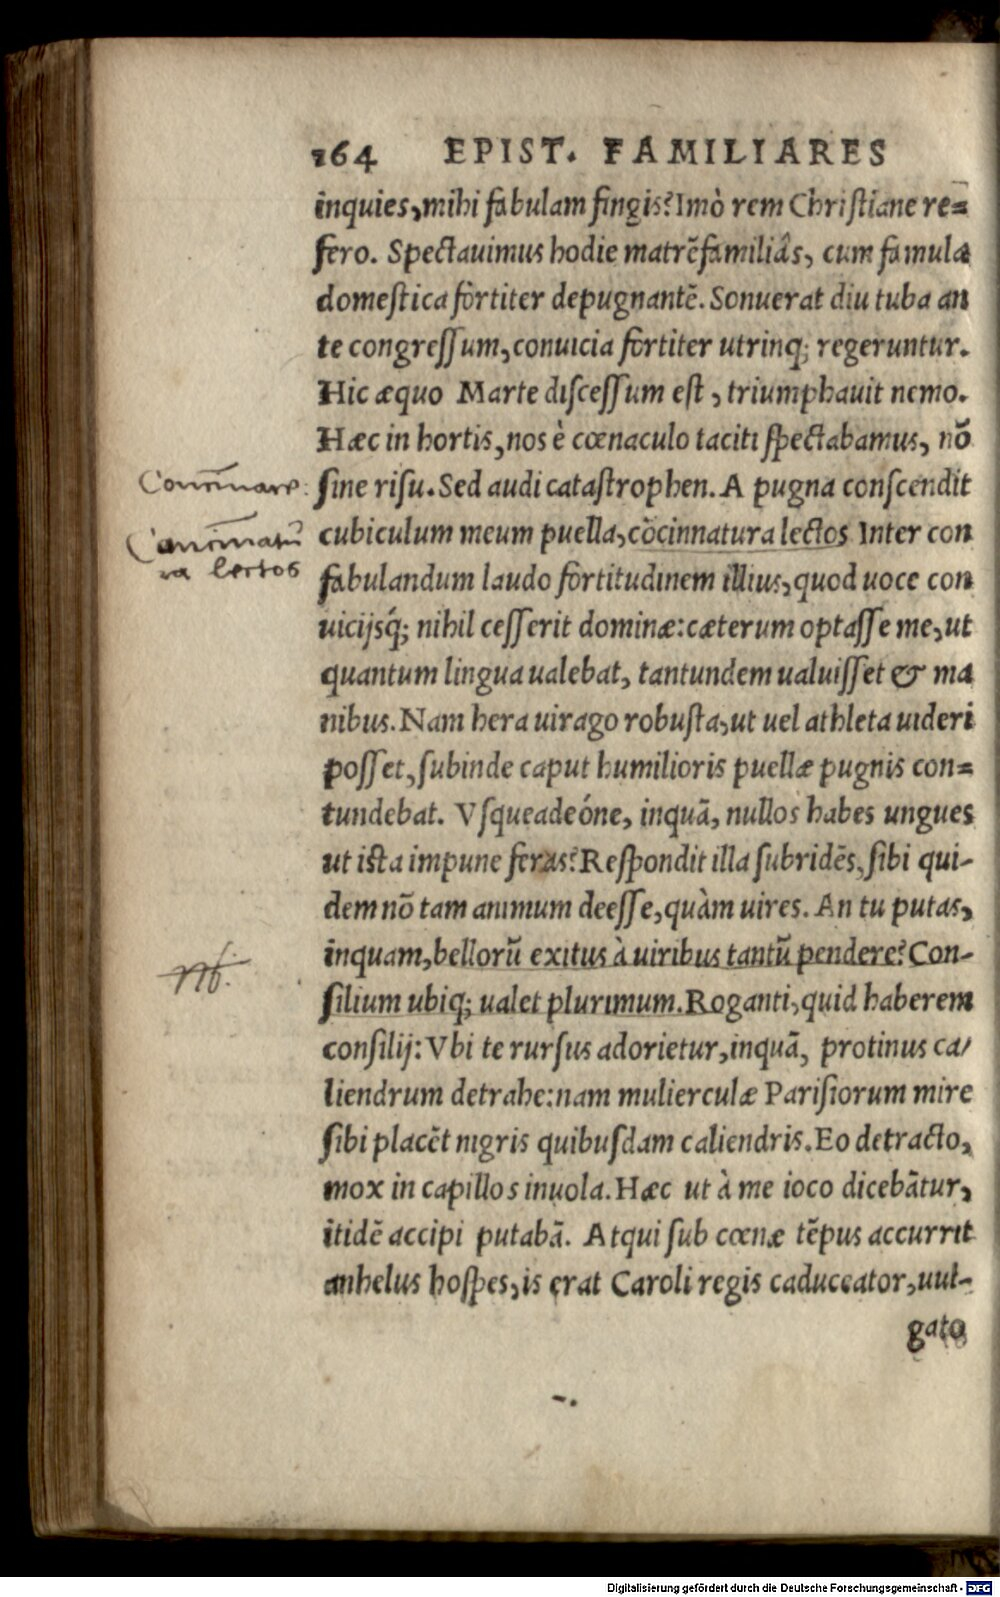 164 EPIST. FAMILIARES
inquies, mihi fabulam fingis? Imò rem Christiane re=
fero. Spectauimus hodie matrẽfamiliâs, cum famula
domestica fortiter depugnantẽ. Sonuerat diu tuba an
te congressum, conuicia fortiter utrinq; regeruntur.
Hic æquo Marte discessum est, triumphauit nemo.
Hæc in hortis, nos è cœnaculo taciti spectabamus, nõ
sine risu. Sed audi catastrophen. A pugna conscendit
cubiculum meum puella, cõcinnatura lectos Inter con
fabulandum laudo fortitudinem illius, quod uoce con
uicijsq́; nihil cesserit dominæ: cæterum optasse me, ut
quantum lingua ualebat, tantundem ualuisset & ma
nibus. Nam hera uirago robusta, ut uel athleta uideri
posset, subinde caput humilioris puellæ pugnis con=
tundebat. Vsqueadeóne, inquã, nullos habes ungues
ut ista impune feras? Respondit illa subridẽs, sibi qui-
dem nõ tam animum deesse, quàm uires. An tu putas,
inquam, bellorũ exitus à uiribus tantũ pendere? Con-
silium ubiq; ualet plurimum. Roganti, quid haberem
consilij: Vbi te rursus adorietur, inquã, protinus ca/
liendrum detrahe: nam mulierculæ Parisiorum mire
sibi placẽt nigris quibusdam caliendris. Eo detracto,
mox in capillos inuola. Hæc ut à me ioco dicebãtur,
itidẽ accipi putabã. Atqui sub cœnæ tẽpus accurrit
anhelus hospes, is erat Caroli regis caduceator, uul-
gato
Concinnare:
Concinnatu
ra lectos
Nb.
Digitalisierung gefördert durch die Deutsche Forschungsgemeinschaft - DFG